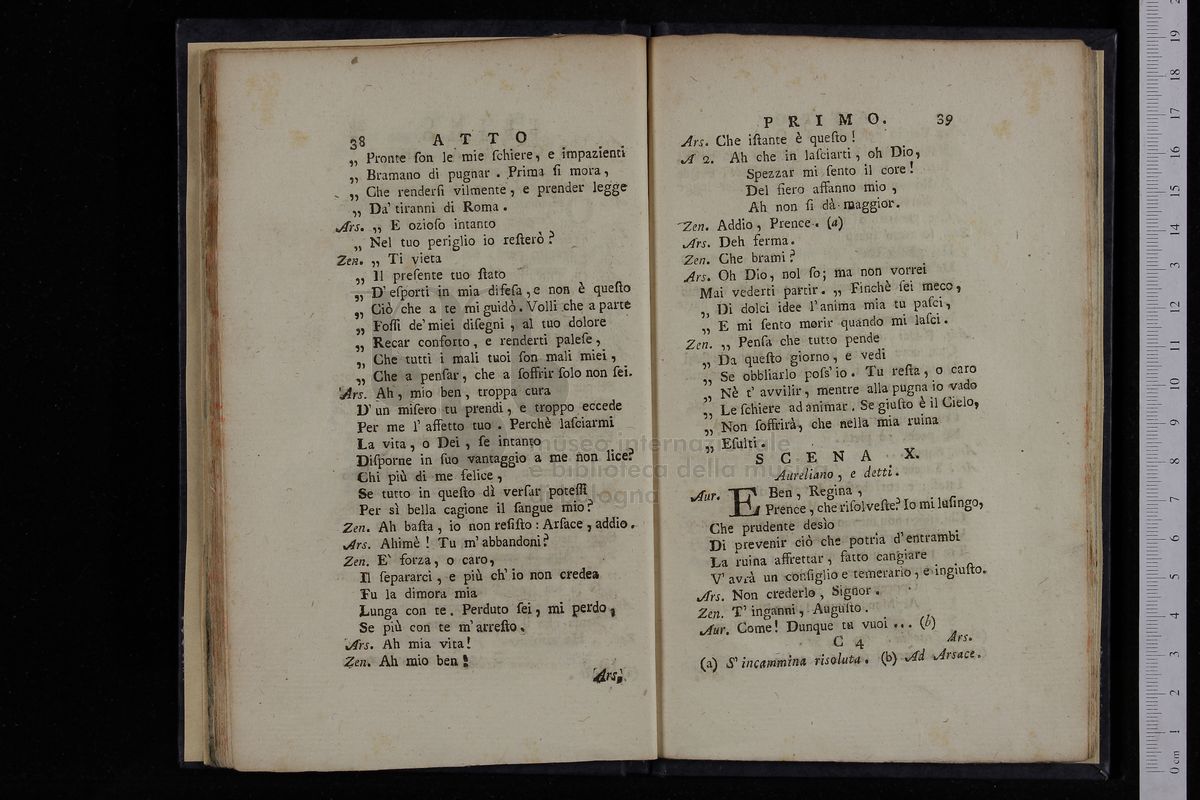 38 ATTO
„ Pronte ſon le mie ſchiere, e impazienti
„ Bramano di pugnar. Prima ſi mora,
„ Che renderſi vilmente, e prender legge
„ Da' tiranni di Roma.
Ars. „ E ozioſo intanto
„ Nel tuo periglio io reſterò?
Zen. „ Ti vieta
„ Il preſente tuo ſtato
„ D' eſporti in mia difeſa, e non è queſto
„ Ciò che a te mi guidò. Volli che a parte
„ Foſſi de' miei diſegni, al tuo dolore
„ Recar conforto, e renderti paleſe,
„ Che tutti i mali tuoi ſon mali miei,
„ Che a penſar, che a ſoffrir ſolo non ſei.
Ars. Ah, mio ben, troppa cura
D' un miſero tu prendi, e troppo eccede
Per me l' affetto tuo. Perchè laſciarmi
La vita, o Dei, ſe intanto
Diſporne in ſuo vantaggio a me non lice?
Chi più di me felice,
Se tutto in queſto dì verſar poteſſi
Per sì bella cagione il ſangue mio?
Zen. Ah baſta, io non reſiſto: Arſace, addio.
Ars. Ahimè! Tu m' abbandoni?
Zen. E' forza, o caro,
Il ſepararci, e più ch' io non credea
Fu la dimora mia
Lunga con te. Perduto ſei, mi perdo,
Se più con te m' arreſto.
Ars. Ah mia vita!
Zen. Ah mio ben!
Ars.
PRIMO. 39
Ars. Che iſtante è queſto!
A 2. Ah che in laſciarti, oh Dio,
Spezzar mi ſento il core!
Del fiero affanno mio,
Ah non ſi dà maggior.
Zen. Addio, Prence. (a)
Ars. Deh ferma.
Zen. Che brami?
Ars. Oh Dio, nol ſo; ma non vorrei
Mai vederti partir. „ Finchè ſei meco,
„ Di dolci idee l' anima mia tu paſci,
„ E mi ſento morir quando mi laſci.
Zen. „ Penſa che tutto pende
„ Da queſto giorno, e vedi
„ Se obbliarlo poſs' io. Tu reſta, o caro
„ Nè t' avvilir, mentre alla pugna io vado
„ Le ſchiere ad animar. Se giuſto è il Cielo,
„ Non ſoffrirà, che nella mia ruina
„ Eſulti.
SCENA X.
Aureliano, e detti.
Aur. EBen, Regina,
Prence, che riſolveſte? Io mi luſingo,
Che prudente desìo
Di prevenir ciò che potria d' entrambi
La ruina affrettar, fatto cangiare
V' avrà un conſiglio e temerario, e ingiuſto.
Ars. Non crederlo, Signor.
Zen. T' inganni, Auguſto.
Aur. Come! Dunque tu vuoi ... (b)
C 4 Ars.
(a) S' incammina risoluta. (b) Ad Arsace.
museo internazionale
e biblioteca della musica
di bologna
0 cm 1 2 3 4 5 6 7 8 9 10 11 12 13 14 15 16 17 18 19